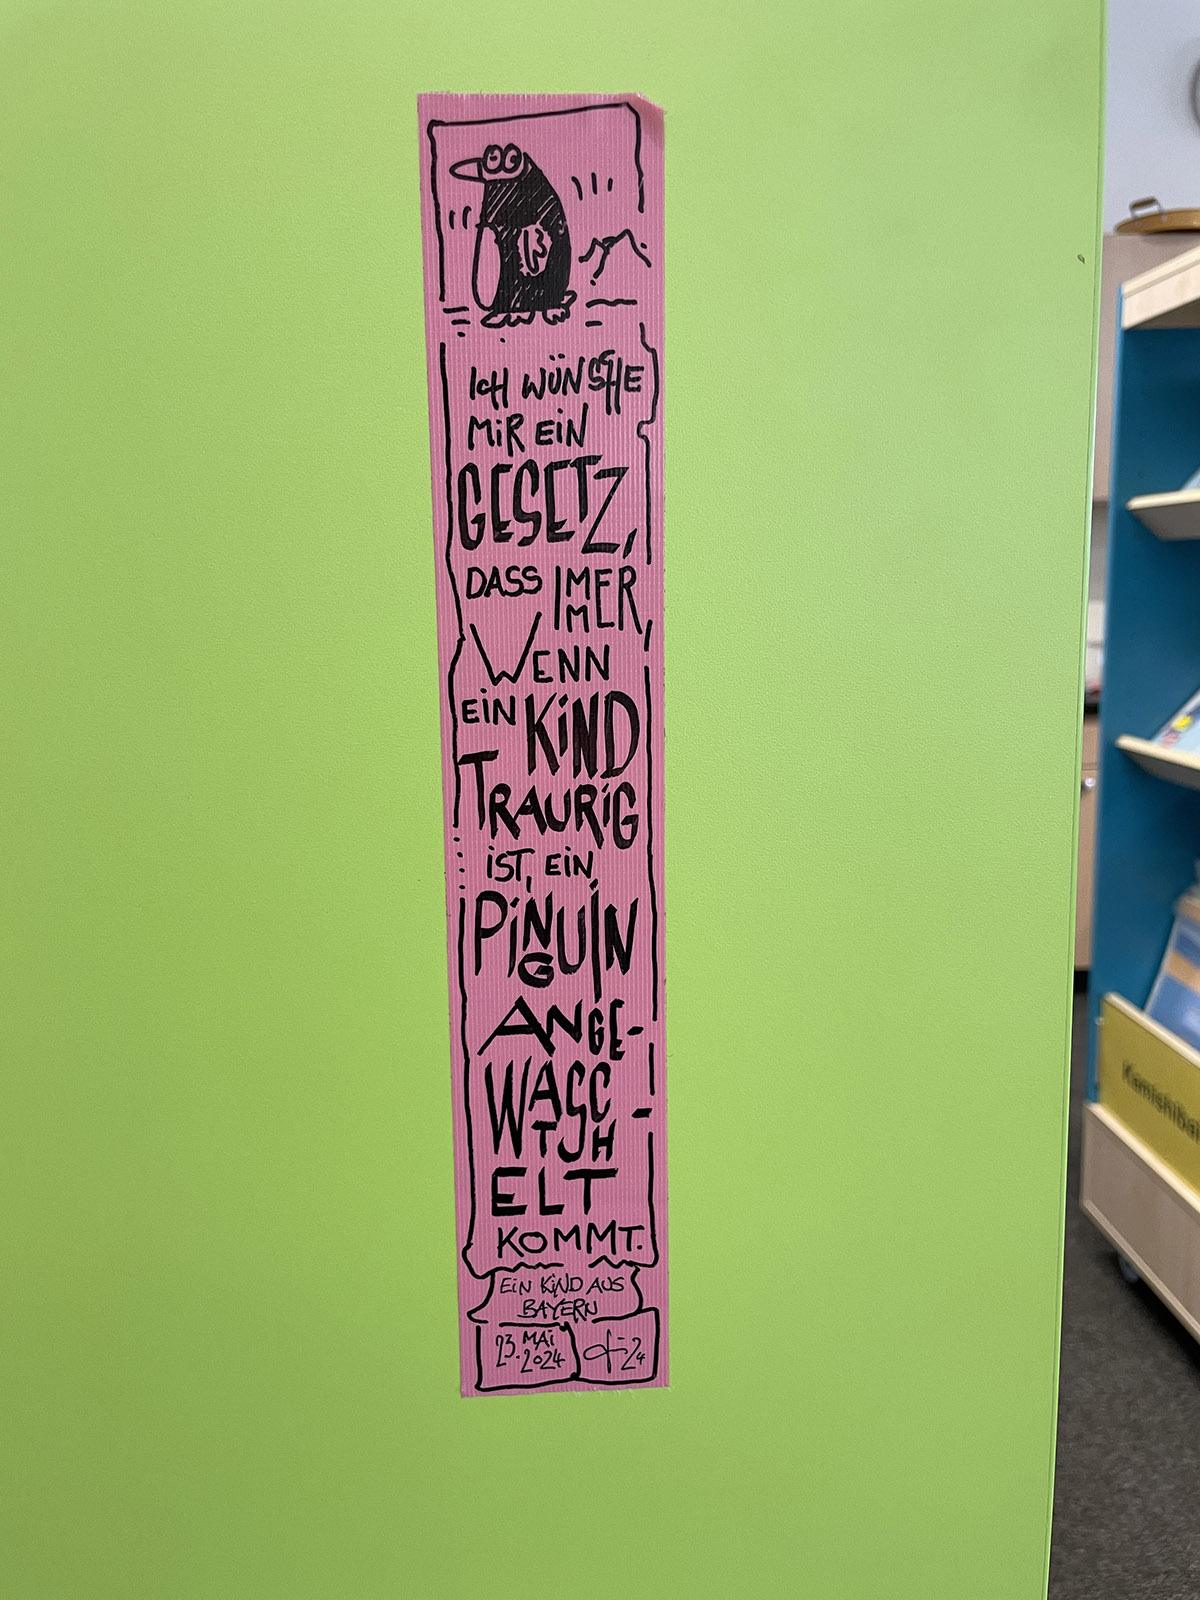 ICH WÜNSCHE
MIR EIN
GESETZ,
DASS IMMER,
WENN
EIN KIND
TRAURIG
IST, EIN
PINGUIN
ANGE-
WATSCH-
ELT
KOMMT.
EIN KIND AUS
BAYERN
23. MAI
2024
Kamishibai